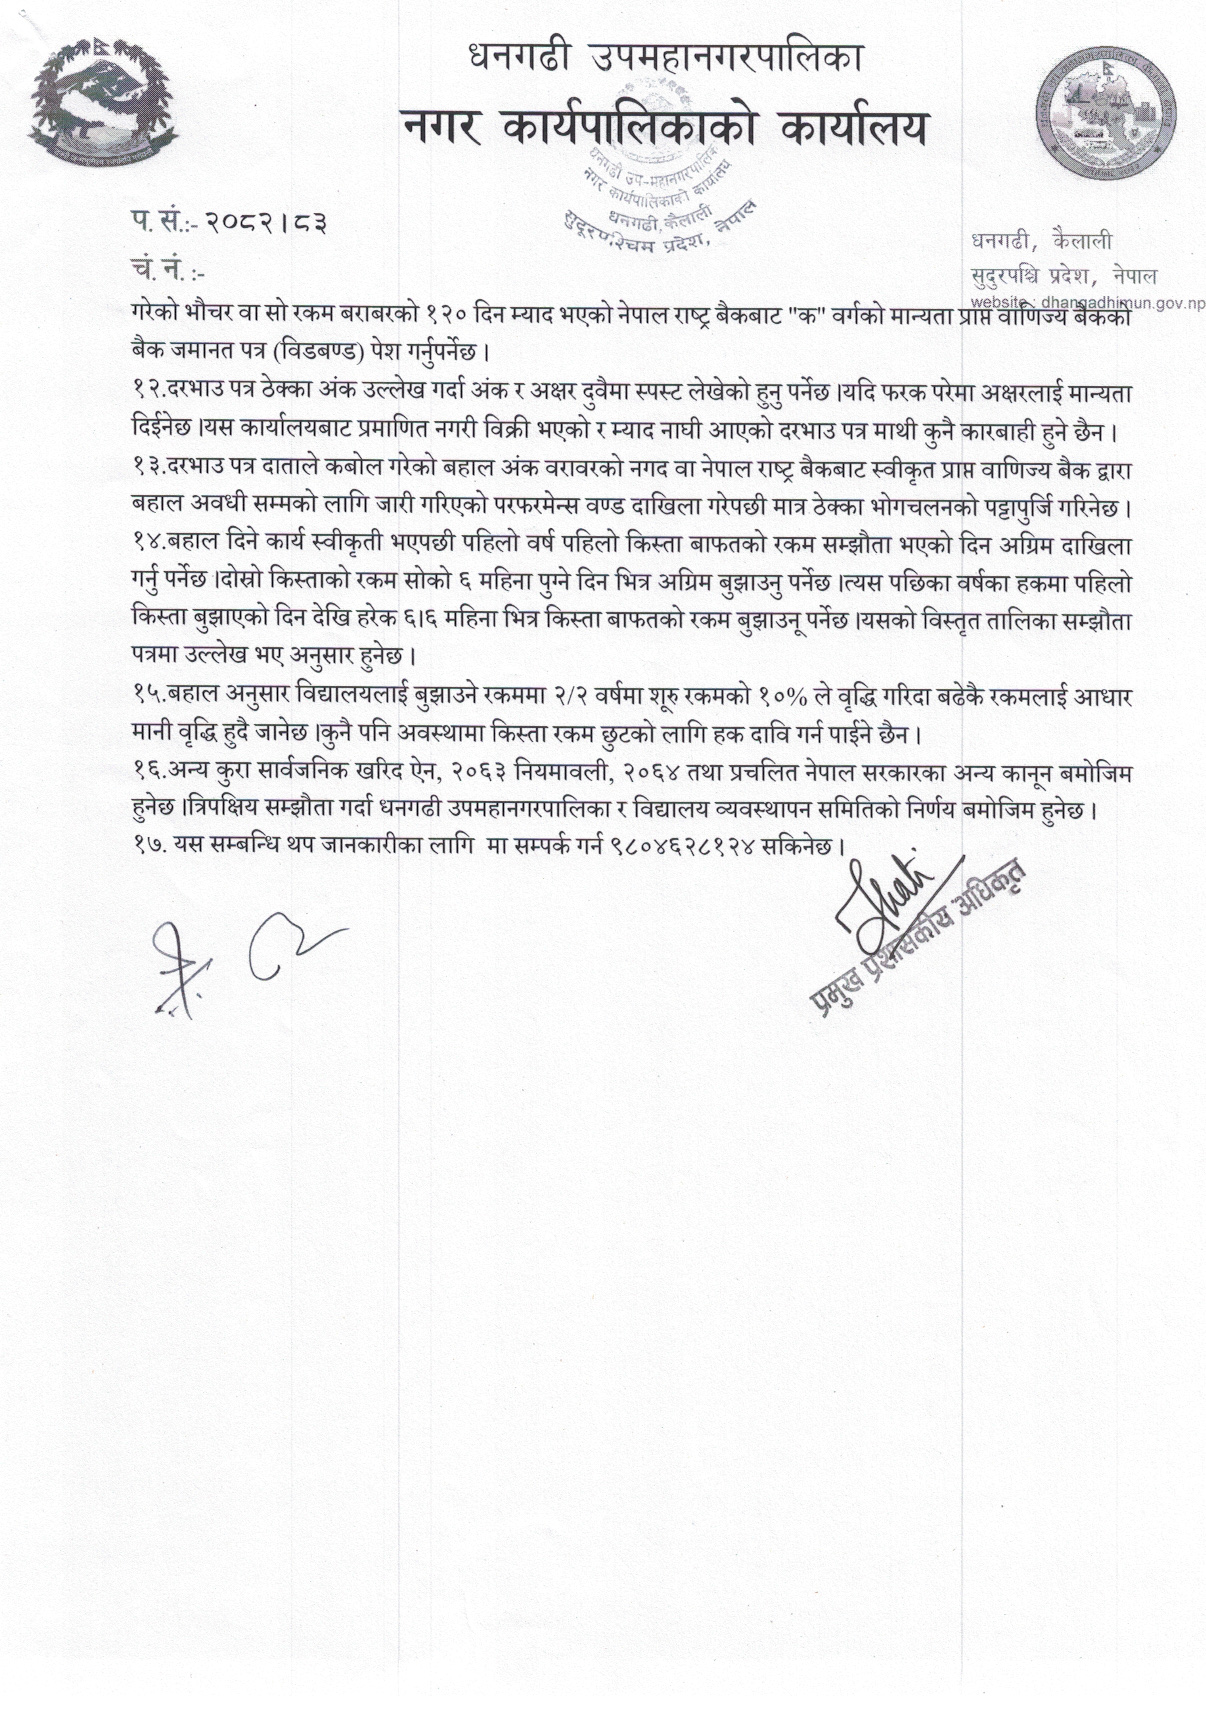 धनगढी उपमहानगरपालिका
नगर कार्यपालिकाको कार्यालय
धनगढी उप-महानगरपालिका
नगर कार्यपालिकाको कार्यालय
धनगढी, कैलाली
सुदूरपश्चिम प्रदेश, नेपाल
प. सं.:- २०८२।८३
चं. नं. :-
धनगढी, कैलाली
सुदुरपश्चि प्रदेश, नेपाल
website : dhangadhimun.gov.np
गरेको भौचर वा सो रकम बराबरको १२० दिन म्याद भएको नेपाल राष्ट्र बैकबाट "क" वर्गको मान्यता प्राप्त वाणिज्य बैकको
बैक जमानत पत्र (विडबण्ड) पेश गर्नुपर्नेछ ।
१२.दरभाउ पत्र ठेक्का अंक उल्लेख गर्दा अंक र अक्षर दुवैमा स्पस्ट लेखेको हुनु पर्नेछ ।यदि फरक परेमा अक्षरलाई मान्यता
दिईनेछ ।यस कार्यालयबाट प्रमाणित नगरी विक्री भएको र म्याद नाघी आएको दरभाउ पत्र माथी कुनै कारबाही हुने छैन ।
१३.दरभाउ पत्र दाताले कबोल गरेको बहाल अंक वरावरको नगद वा नेपाल राष्ट्र बैकबाट स्वीकृत प्राप्त वाणिज्य बैक द्वारा
बहाल अवधी सम्मको लागि जारी गरिएको परफरमेन्स वण्ड दाखिला गरेपछी मात्र ठेक्का भोगचलनको पट्टापुर्जि गरिनेछ ।
१४.बहाल दिने कार्य स्वीकृती भएपछी पहिलो वर्ष पहिलो किस्ता बाफतको रकम सम्झौता भएको दिन अग्रिम दाखिला
गर्नु पर्नेछ ।दोस्रो किस्ताको रकम सोको ६ महिना पुग्ने दिन भित्र अग्रिम बुझाउनु पर्नेछ ।त्यस पछिका वर्षका हकमा पहिलो
किस्ता बुझाएको दिन देखि हरेक ६।६ महिना भित्र किस्ता बाफतको रकम बुझाउनू पर्नेछ ।यसको विस्तृत तालिका सम्झौता
पत्रमा उल्लेख भए अनुसार हुनेछ ।
१५.बहाल अनुसार विद्यालयलाई बुझाउने रकममा २/२ वर्षमा शूरु रकमको १०% ले वृद्धि गरिदा बढेकै रकमलाई आधार
मानी वृद्धि हुदै जानेछ ।कुनै पनि अवस्थामा किस्ता रकम छुटको लागि हक दावि गर्न पाईने छैन ।
१६.अन्य कुरा सार्वजनिक खरिद ऐन, २०६३ नियमावली, २०६४ तथा प्रचलित नेपाल सरकारका अन्य कानून बमोजिम
हुनेछ ।त्रिपक्षिय सम्झौता गर्दा धनगढी उपमहानगरपालिका र विद्यालय व्यवस्थापन समितिको निर्णय बमोजिम हुनेछ ।
१७. यस सम्बन्धि थप जानकारीका लागि  मा सम्पर्क गर्न ९८०४६२८१२४ सकिनेछ ।
प्रमुख प्रशासकीय अधिकृत